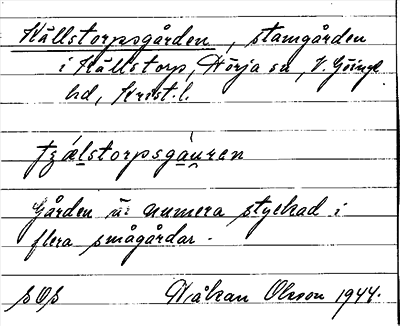 Källstorpsgården, stamgården
i Källstorp, Hörja sn, V. Göinge
hd, Krist. l.
tɟälstorpsgåuren
Gården är numera styckad i
flera smågårdar.
SOS Håkan Olsson 1944.